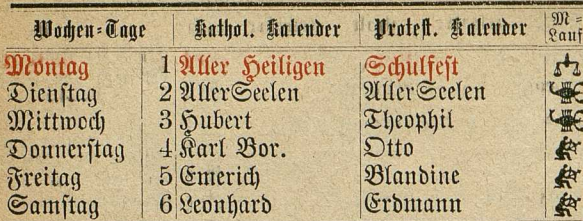 Wochen=Tage Kathol. Kalender Protest. Kalender M= Lauf
Montag 1 Aller Heiligen Schulfest
Dienstag 2 AllerSeelen AllerSeelen
Mittwoch 3 Hubert Theophil
Donnerstag 4 Karl Bor. Otto
Freitag 5 Emerich Blandine
Samstag 6 Leonhard Erdmann